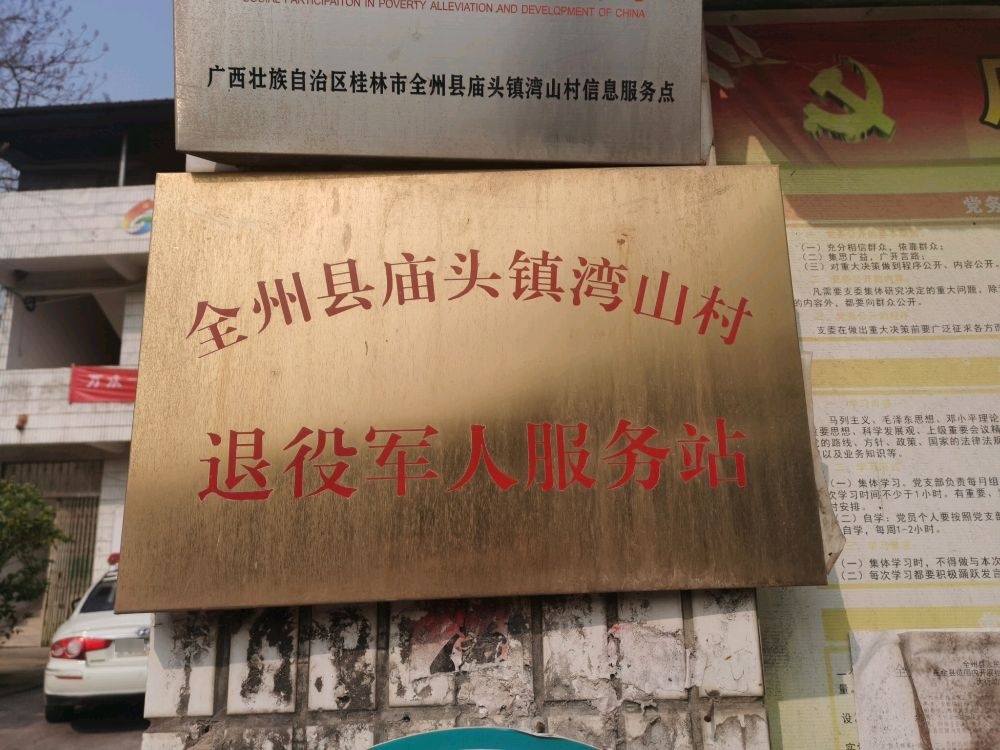 SOCIAL PARTICIPAITON IN POVERTY ALLEVIATION AND DEVELOPMENT OF CHINA
广西壮族自治区桂林市全州县庙头镇湾山村信息服务点
全州县庙头镇湾山村
退役军人服务站
党务
（一）充分相信群众，依靠群众；
（二）集思广益，广开言路；
（三）对重大决策做到程序公开、内容公开。
凡需要支委集体研究决定的重大问题，除
的内容外，都要向群众公开。
支委在做出重大决策前要广泛征求各方面
马列主义、毛泽东思想、邓小平理论
要思想、科学发展观、上级重要会议精
的路线、方针、政策、国家的法律法规
以及业务知识等。
（一）集体学习。党支部负责每月组
次学习时间不少于1小时。有重要、
时安排。
（二）自学：党员个人要按照党支部
自学，每周1-2小时。
（一）集体学习时，不得做与本次
（二）每次学习都要积极踊跃发言